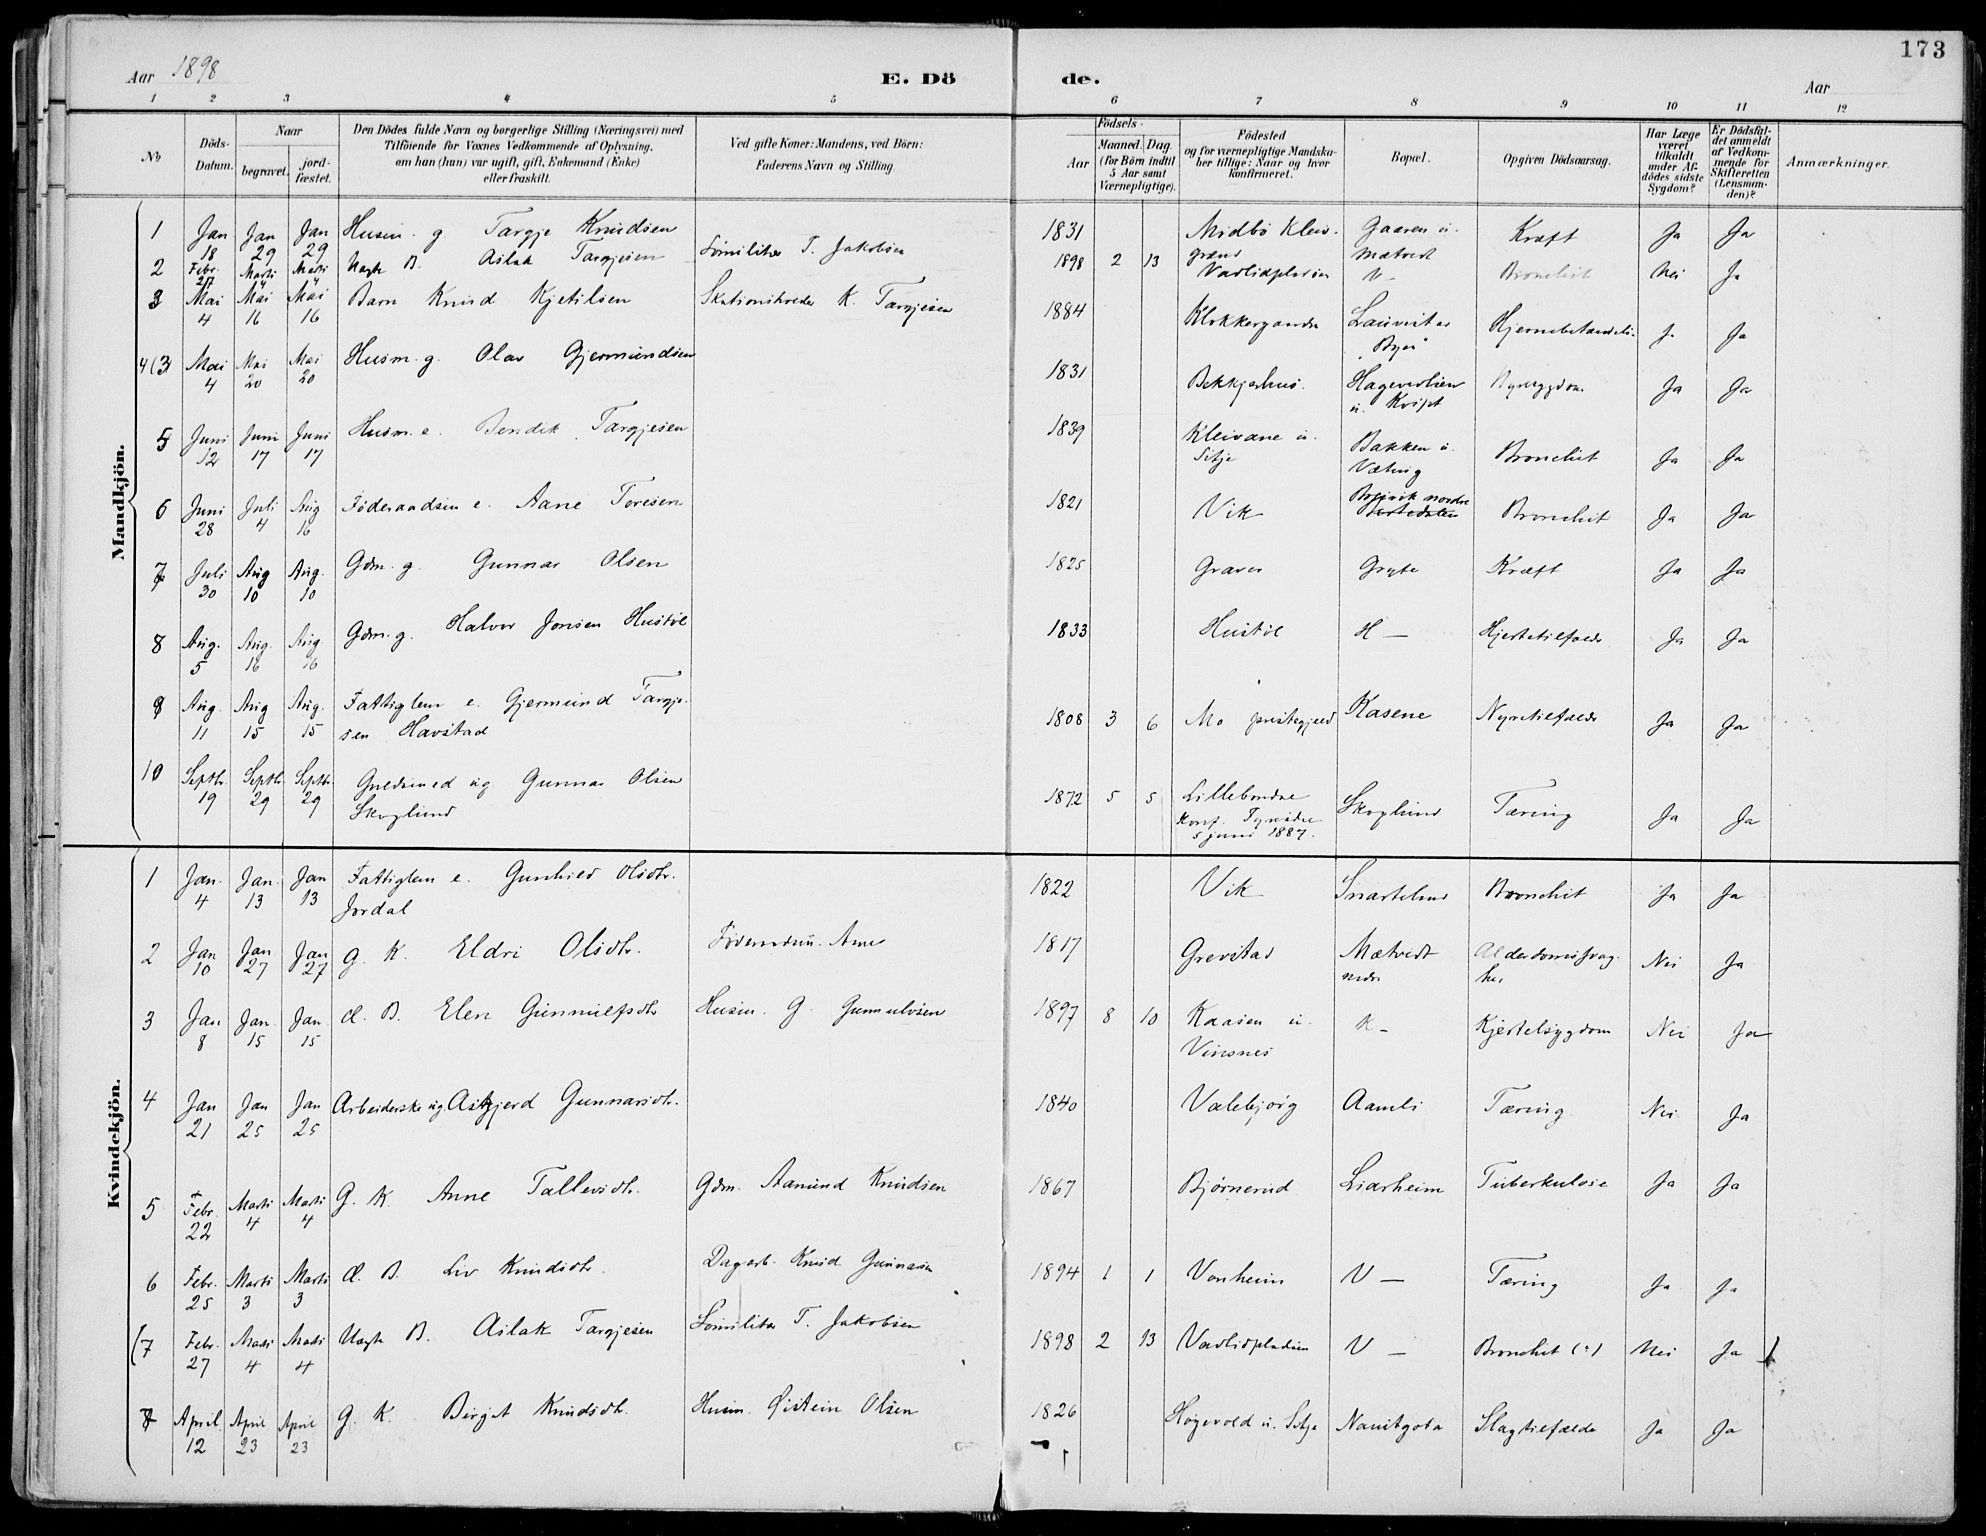 173
Aar 1898
E. Dö de.
Aar
1 2 3 4 5 6 7 8 9 10 11 12
No
Döds-Datum.
Naar
begravet.
jord-fæstet.
Den Dödes fulde Navn og borgerlige Stilling (Næringsvei) med
Tilföiende for Voxnes Vedkommende af Oplysning,
om han (hun) var ugift, gift, Enkemand (Enke)
eller fraskilt.
Ved gifte Koner: Mandens, ved Börn:
Faderens Navn og Stilling.
Födsels-
Aar
Maaned. Dag.
(for Börn indtil
5 Aar samt
Værnepligtige).
Födested
og for værnepligtige Mandska-
ber tillige: Naar og hvor
konfirmeret.
Bopæl.
Opgiven Dödsaarsag.
Har Læge
været
tilkaldt
under Af-
dödes sidste
Sygdom?
Er Dödsfal-
det anmeldt
af Vedkom-
mende for
Skifteretten
(Lensman-
den)?
Anmærkninger.
Mandkjön.
1 Jan 18 Jan 29 Jan 29 Husm. g. Targje Knudsen 1831 Midbø Kleiv- grend Gaaren u. Mætvedt Kræft Ja Ja
2 Febr. 27 Marts 4 Marts 4 Uægte B. Aslak Targjesen T. Jakobsen 1898 2 13 Vadlidpladsen V- Bronchit Nei Ja
3 Mai 4 Mai 16 Mai 16 Barn Knud Kjetilsen Skationsholder K. Targjesen 1884 "Byen" J. Ja
4(3) Mai 4 Mai 20 Mai 20 Husm. g. Olav Gjermundsen 1831 Bekkjarhus. u. Kvist Nyresygdom Ja Ja
5 Juni 12 Juni 17 Juni 17 Husm. e. Bendik Targjesen 1839 Kleivane u. Sitje Bakken u. Bronchit Ja Ja
6 Juni 28 Juli 4 Aug 16 Føderaadsm e. Aane Toresen 1821 Vik nordre Bronchit Ja Ja
7 Juli 30 Aug 10 Aug. 10 Gdm. g. Gunnar Olsen 1825 Graver Kræft Ja Ja
8 Aug. 5 Aug. 16 Aug. 16 Gdm. g. Halvor Jonsen Hustøl 1833 Hustøl H- Hjertetilfælde Ja Ja
9 Aug. 11 Aug 15 Aug. 15 Fattiglem e. Gjermund Targje-
sen Havstad 1808 3 6 Mo prestegjeld Kasene Nyretilfælde Ja Ja
10 Septbr. 19 Septbr. 29 Septbr. 29 Guldsmed ug. Gunnar Olsen
Skoglund 1872 5 5 Konf. 5 juni 1887. Skoglund Tæring Ja Ja
Kvindekjön.
1 Jan. 4 Jan. 13 Jan 13 Fattiglem e. Gunhild Olsdtr.
Jordal 1822 Vik Bronchit Ja Ja
2 Jan 10 Jan 27 Jan 27 g. K. Eldri Olsdtr. 1817 Grevstad Mætvedt nedre Alderdomssvag-
hed Nei Ja
3 Jan 8 Jan. 15 Jan. 15 d. B. Elen Gunnulfsdtr Husm. G. Gunnulvsen 1897 8 10 Kaasen u.
Vinsnes K- Kjertelsygdom Nei Ja
4 Jan 21 Jan 25 Jan 25 Arbeiderske ug. Asbjerd Gunnarsdtr. 1840 Valebjørg Aamli Tæring Nei Ja
5 Febr. 22 Marts 4 Marts 4 G. K. Anne Tallevsdtr. Gdm. Aanund Knudsen 1867 Bjørnerud Liarheim Tuberkulose Ja Ja
6 Febr. 25 Marts 3 Marts 3 d. B. Liv Knudsdtr. Dagarb. Knud Gunnarsen 1894 1 1 Vonheim V- Tæring Ja Ja
(7 Febr. 27 Marts 4 Marts 4 Uægte B. Aslak Targjesen T. Jakobsen 1898 2 13 Vadlidpladsen V- Bronchit (:) Nei Ja )
8 April 12 April 23 April 23 G. K. Birgit Knudsdtr. Husm. Øistein Olsen 1826 Høgevold u. Sitje Slagtilfælde Ja Ja